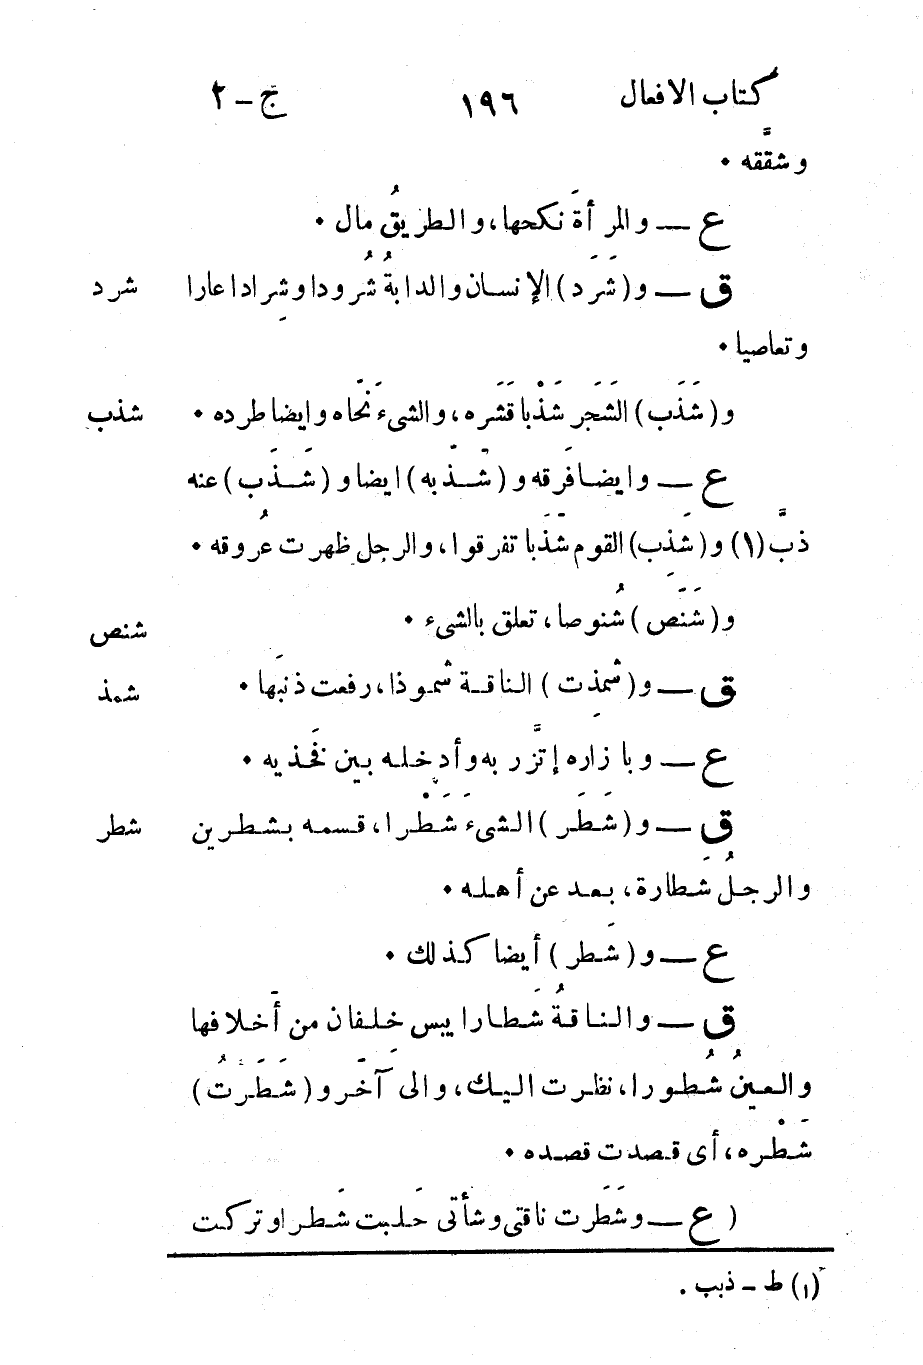 كتاب الافعال ١٩٦ ج - ٢
وشقّقه •
ع — والمرأةَ نكحها، والطريقُ مال •
ق — و (شَرَد) الإنسان والدابةُ شُرودا وشِرادا عارا شرد
وتعاصيا •
و (شَذَب) الشَجَر شَذْبا قَشَره، والشىء نَحّاه وايضا طرده • شذب
ع — وايضا فَرّقه و (شَذّبه) ايضا و (شَذَب) عنه
ذبَّ (١) و (شَذِب) القومُ شَذَبا تفرقوا، والرجل ظهرت عُروقه •
و (شَنَص) شُنوصا، تعلق بالشىء • شنص
ق — و (شمِذت) الناقة شُموذا، رفعت ذنَبها • شمذ
ع — وبازاره إتّزر به وأدخله بين فَخذيه •
ق — و (شَطَر) الشىء شَطْرا، قَسَمه بشَطْرين شطر
والرجلُ شَطارة، بعد عن أهله •
ع — و (شَطر) أيضا كذلك •
ق — والناقةُ شَطارا يبس خَلفان من أَخلافها
والعينُ شُطورا، نظرت اليك، والى آخَر و (شَطَرتُ)
شَطْره، أى قصدت قصده •
( ع — وشَطَرت ناقتى وشأتى حَلبت شَطر او تركت
(١) ط - ذبب .